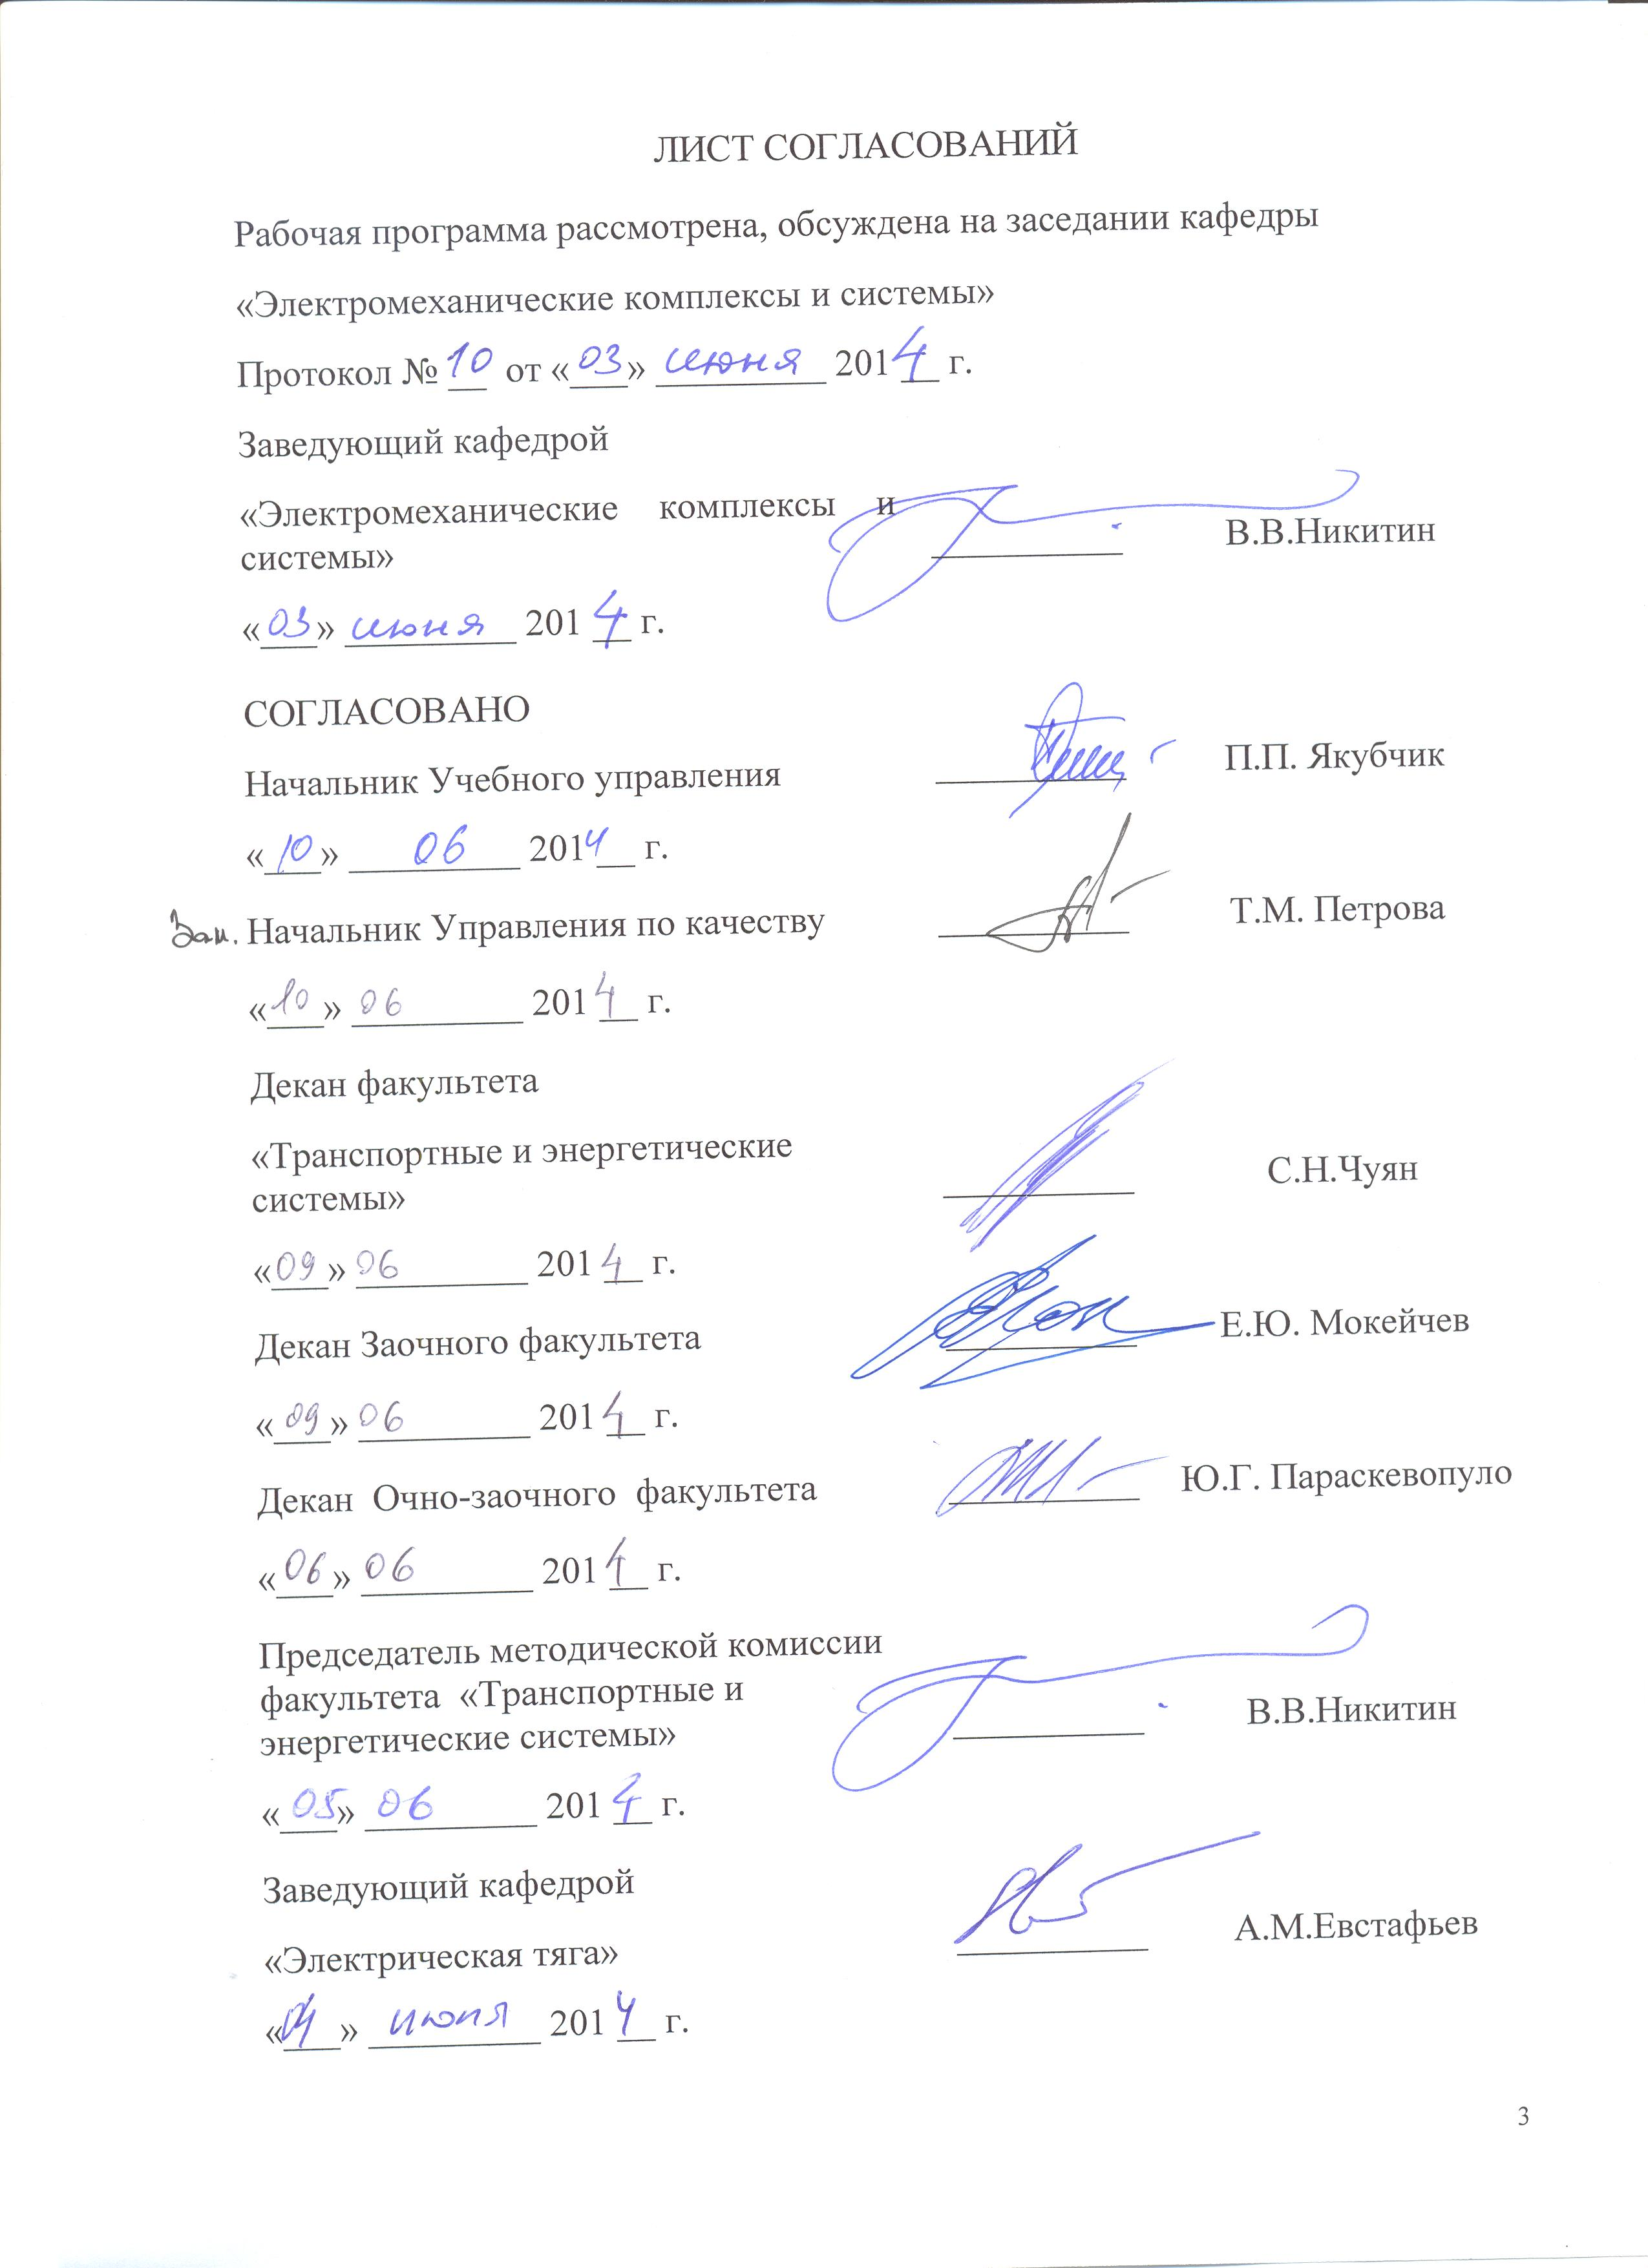 ЛИСТ СОГЛАСОВАНИЙ
Рабочая программа рассмотрена, обсуждена на заседании кафедры
«Электромеханические комплексы и системы»
Протокол № 10 от «03» июня 2014 г.
Заведующий кафедрой
«Электромеханические комплексы и
системы» В.В.Никитин
«03» июня 2014 г.
СОГЛАСОВАНО
Начальник Учебного управления П.П. Якубчик
«10» 06 2014 г.
Зам. Начальник Управления по качеству Т.М. Петрова
«10» 06 2014 г.
Декан факультета
«Транспортные и энергетические
системы» С.Н.Чуян
«09» 06 2014 г.
Декан Заочного факультета Е.Ю. Мокейчев
«09» 06 2014 г.
Декан Очно-заочного факультета Ю.Г. Параскевопуло
«06» 06 2014 г.
Председатель методической комиссии
факультета «Транспортные и
энергетические системы» В.В.Никитин
«05» 06 2014 г.
Заведующий кафедрой
«Электрическая тяга» А.М.Евстафьев
«04» июня 2014 г.
3